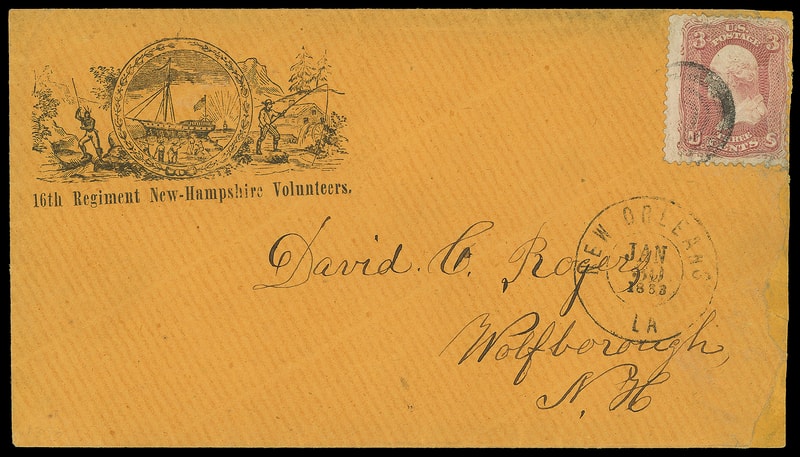 16th Regiment New-Hampshire Volunteers.
3 U.S. 3
POSTAGE
CENTS
NEW ORLEANS
JAN
1863
LA
David. C. Rogers
Wolfborough,
N. H